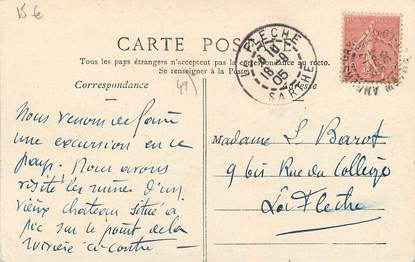 15 €
CARTE POSTALE
Tous les pays étrangers n'acceptent pas la correspondance au recto.
Se renseigner à la Poste
Correspondance
Adresse
LA FLECHE
18-9
05
SARTHE
49
Nous venons de faire
une excursion en ce
pays. Nous avons
visité les ruines d'un
vieux chateau situé à
pic sur le point de la
rivière ci-contre —
Madame L Barot
9 bis Rue du Collège
La Fleche